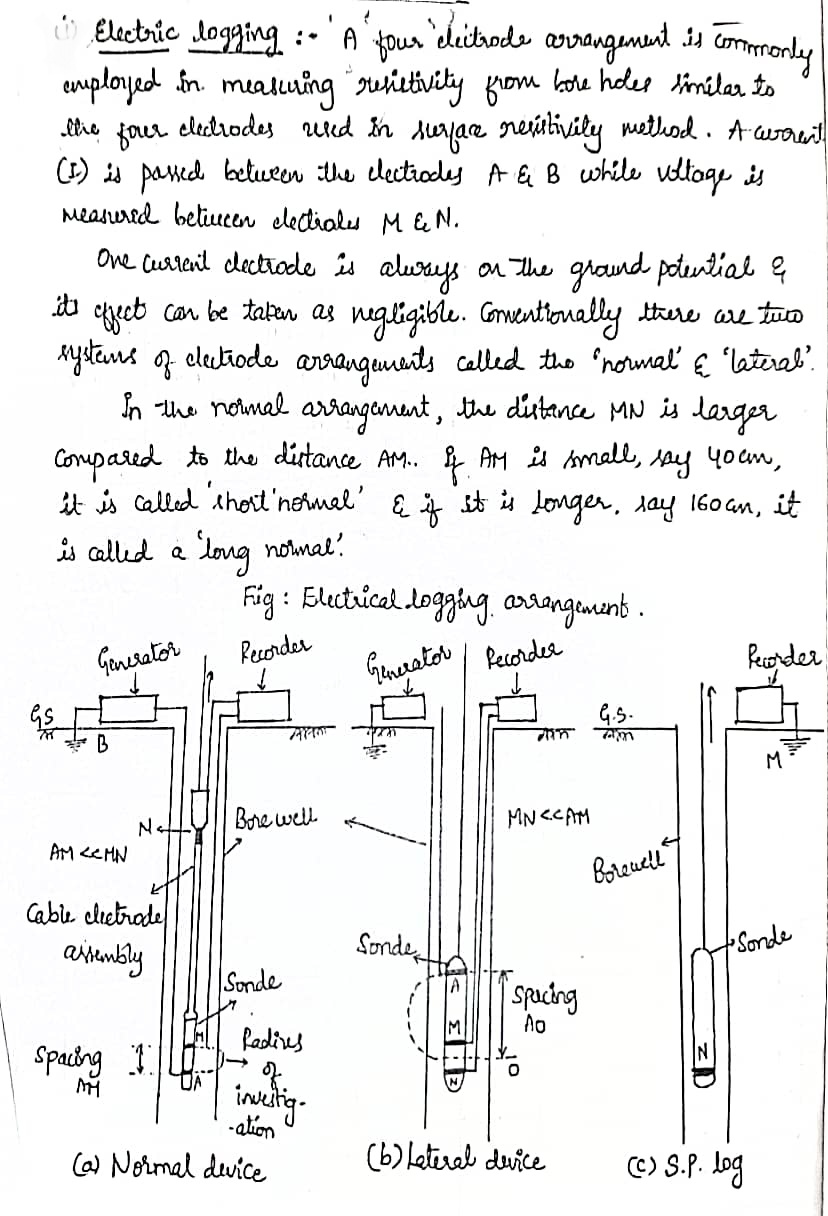 (i) Electric logging :- 'A' four 'electrode arrangement is commonly
employed in measuring resistivity from bore holes similar to
the four electrodes used in surface resistivity method. A current
(I) is passed between the electrodes A & B while voltage is
measured between electrodes M & N.
One current electrode is always on the ground potential &
its effect can be taken as negligible. Conventionally there are two
systems of electrode arrangements called the 'normal' & 'lateral'.
In the normal arrangement, the distance MN is larger
compared to the distance AM.. If AM is small, say 40cm,
it is called 'short 'normal' & if it is longer, say 160cm, it
is called a 'long normal'.
Fig : Electrical logging arrangement.
Generator
Recorder
GS
B
N
Borewell
AM <<MN
Cable electrode
assembly
Sonde
M
Spacing
AM
A
Radius
of
investig-
-ation
(a) Normal device
Generator
Recorder
MN <<AM
Sonde
A
M
N
Spacing
AO
O
(b) Lateral device
Recorder
G.S.
M
Borewell
Sonde
N
(c) S.P. log